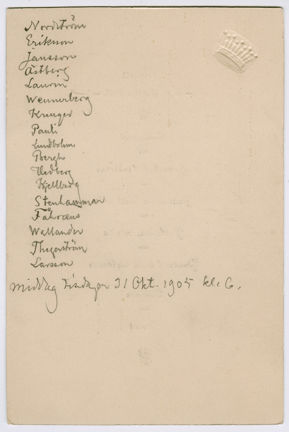 Nordström
Erikson
Jansson
Åstberg
Laurin
Wennerberg
Kreuger
Pauli
Lindholm
Bergh
Hedberg
Kjellberg
Stenhammar
Fåhræus
Wallander
Thegerström
Larsson
Middag tisdagen 31 Okt. 1905 kl. 6.